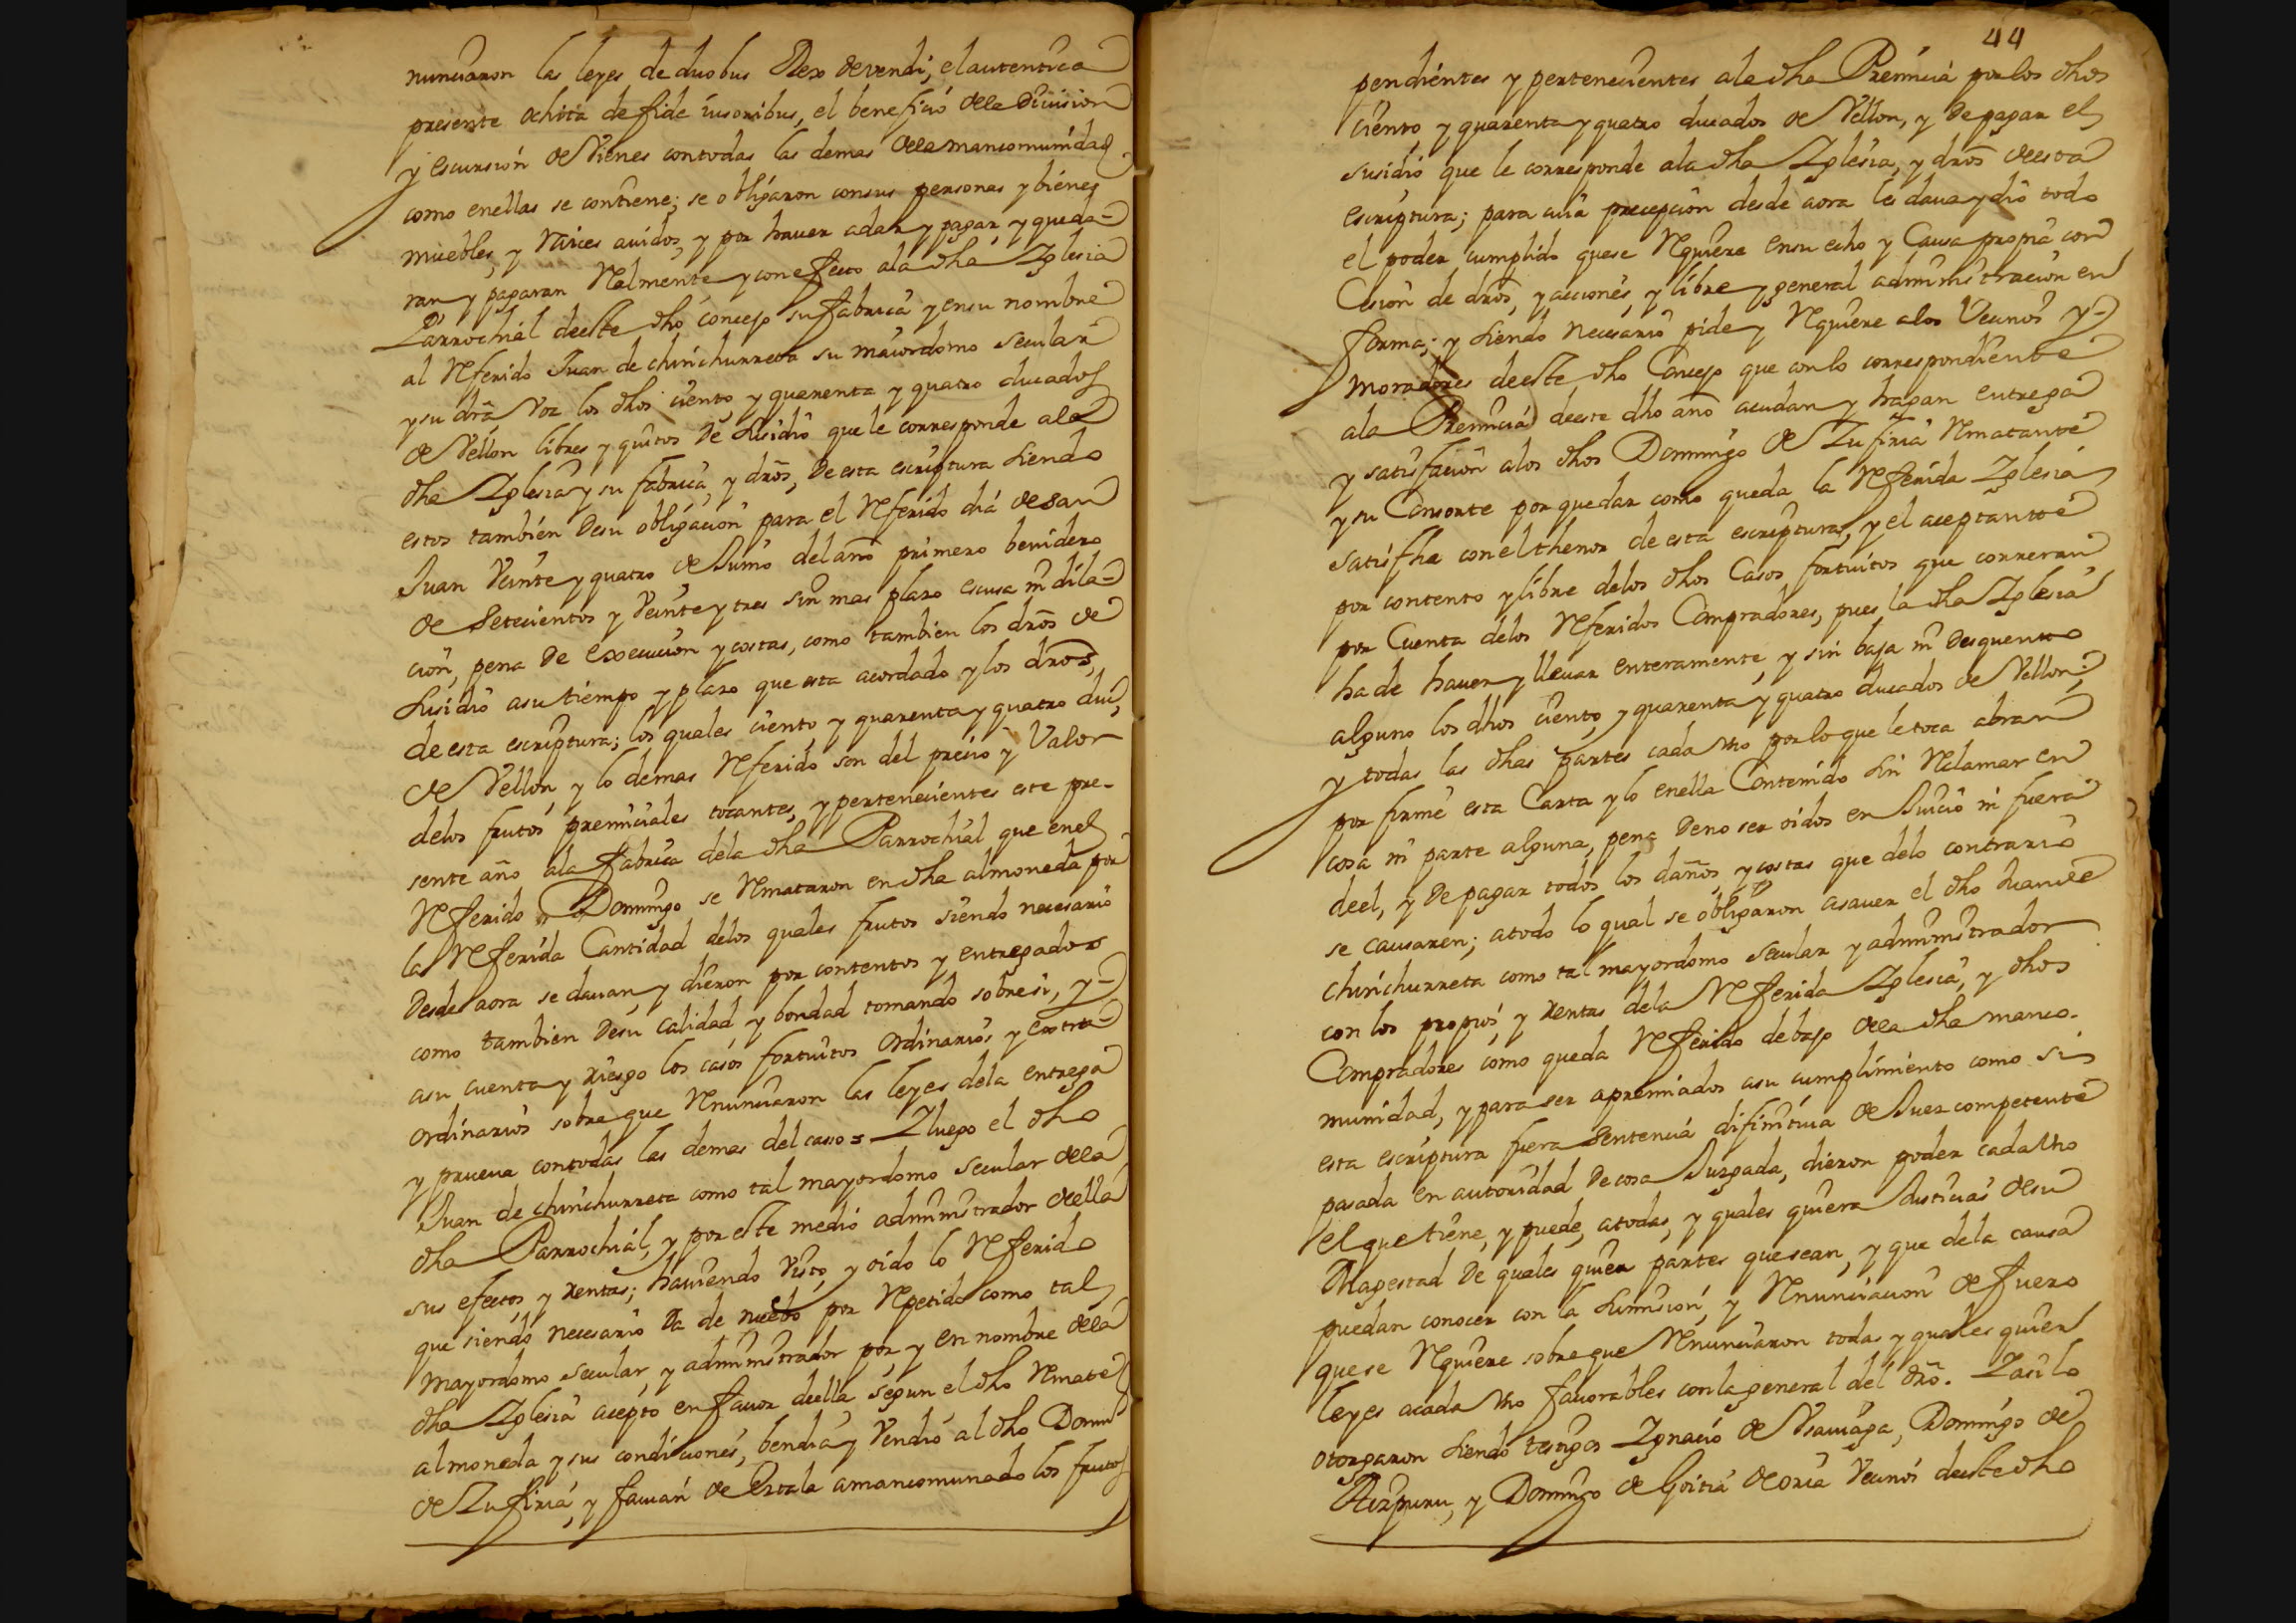 nunciaron las leyes de duobus Rex devendi, el autentica
presente ochita de fide iusoribus, el beneficio dela Divission
y escursion de Vienes contodas las demas dela mancomunidad
como enellas se contiene; se obligaron consus personas y bienes
muebles, y Raices auidos, y por hauer adar y pagar, y queda-
ran y pagaran Realmente y con efecto ala dha Iglesia
Parrochial deeste dho concejo su fabrica y ensu nombre
al Referido Juan de chinchurreta su maiordomo secular
y su dra Voz los dhos ciento y quarenta y quatro ducados
de Vellon libres y quitos de susidio que le corresponde ala
dha Iglesia y su fabrica, y dros, de esta escriptura siendo
estos tambien desu obligacion para el Referido dia de san
Juan Veinte y quatro de Junio del año primero benidero
de setecientos y Veinte y tres sin mas plazo escusa ni dila-
cion, pena de execucion y costas, como tambien los dros de
susidio asu tiempo y plazo que esta acordado y los dros,
de esta escriptura; los quales ciento y quarenta y quatro duc,
de Vellon, y lo demas Referido son del precio y Valor
delos frutos premiciales tocantes, y pertenecientes este pre-
sente año ala fabrica dela dha Parrochial que enel
Referido Domingo se Remataron en dha almoneda por
la Referida Cantidad delos quales frutos siendo necesario
Desde aora se dauan y dieron por contentos y entregados
como tambien desu calidad y bondad tomando sobresi, y-
asu cuenta y riesgo los casos fortuitos ordinarios y extra-
ordinarios sobre que Renunciaron las leyes dela entrega
y prueua contodas las demas del casso = I luego el dho
Juan de chinchurreta como tal mayordomo secular dela
dha Parrochial, y por este medio administrador della
sus efectos, y rentas; hauiendo Visto, y oido lo Referido
que siendo necesario Da de nuebo por Repetido como tal
mayordomo secular, y administrador por, y en nombre dela
dha Iglesia acepto en fauor deella segun el dho Remate
almoneda y sus condiciones, bendia y Vendio al dho Domingo
de Zufiria, y fauian de Ertala amancomunado los frutos
44
pendientes y pertenecientes ala dha Premicia por los dhos
ciento y quarenta y quatro ducados de Vellon, y de pagar el
susidio que le corresponde ala dha Iglesia, y dros deesta
escriptura; para cuia precepcion desde aora les daua y dio todo
el poder cumplido quese Requiere ensu echo y Causa propia con
Cesion de dros, y acciones, y libre y general administracion en
forma; y siendo necesario pide y Requiere alos Vecinos y-
moradores deeste dho Concejo que con lo correspondiente
ala Premicia deeste dho año acudan y hagan entrega
y satisfacion alos dhos Domingo de Zufiria Rematante
y su Consorte por quedar como queda la Referida Iglesia
satisfha con el thenor de esta escriptura, y el aceptante
por contento y libre delos dhos Casos fortuitos que correran
por Cuenta delos Referidos Compradores, pues la dha Iglesia
ha de hauer y lleuar enteramente, y sin baja ni desquento
alguno los dhos ciento, y quarenta y quatro ducados de Vellon;
y todas las dhas partes cada Vno por lo que le toca abran
por firme esta Carta y lo enella Contenido sin Reclamar en
cosa ni parte alguna, pena deno ser oidos en Juicio ni fuera
deel, y de pagar todos los daños, y costas que delo contrario
se causaren; atodo lo qual se obligaron asauer el dho Juan de
chinchurreta como tal mayordomo secular y administrador
con los propios, y rentas dela Referida Iglesia, y dhos
Compradores como queda Referido debajo dela dha manco-
munidad, y para ser apremiados asu cumplimiento como si
esta escriptura fuera sentencia difinitiua de Juez competente
pasada en autoridad de cosa Juzgada, dieron poder cada Vno
el que tiene, y puede, atodas, y quales quiera Justicias desu
Magestad de quales quier partes que sean, y que dela causa
puedan conocer con la sumision, y Renunciacion de fuero
quese Requiere sobre que Renunciaron todas y quales quier
leyes acada Vno fauorables con la general del dro. I asi lo
otorgaron siendo testigos Ignacio de Vsauiaga, Domingo de
Aizpuru, y Domingo de Goitia de oria Vecinos deeste dho